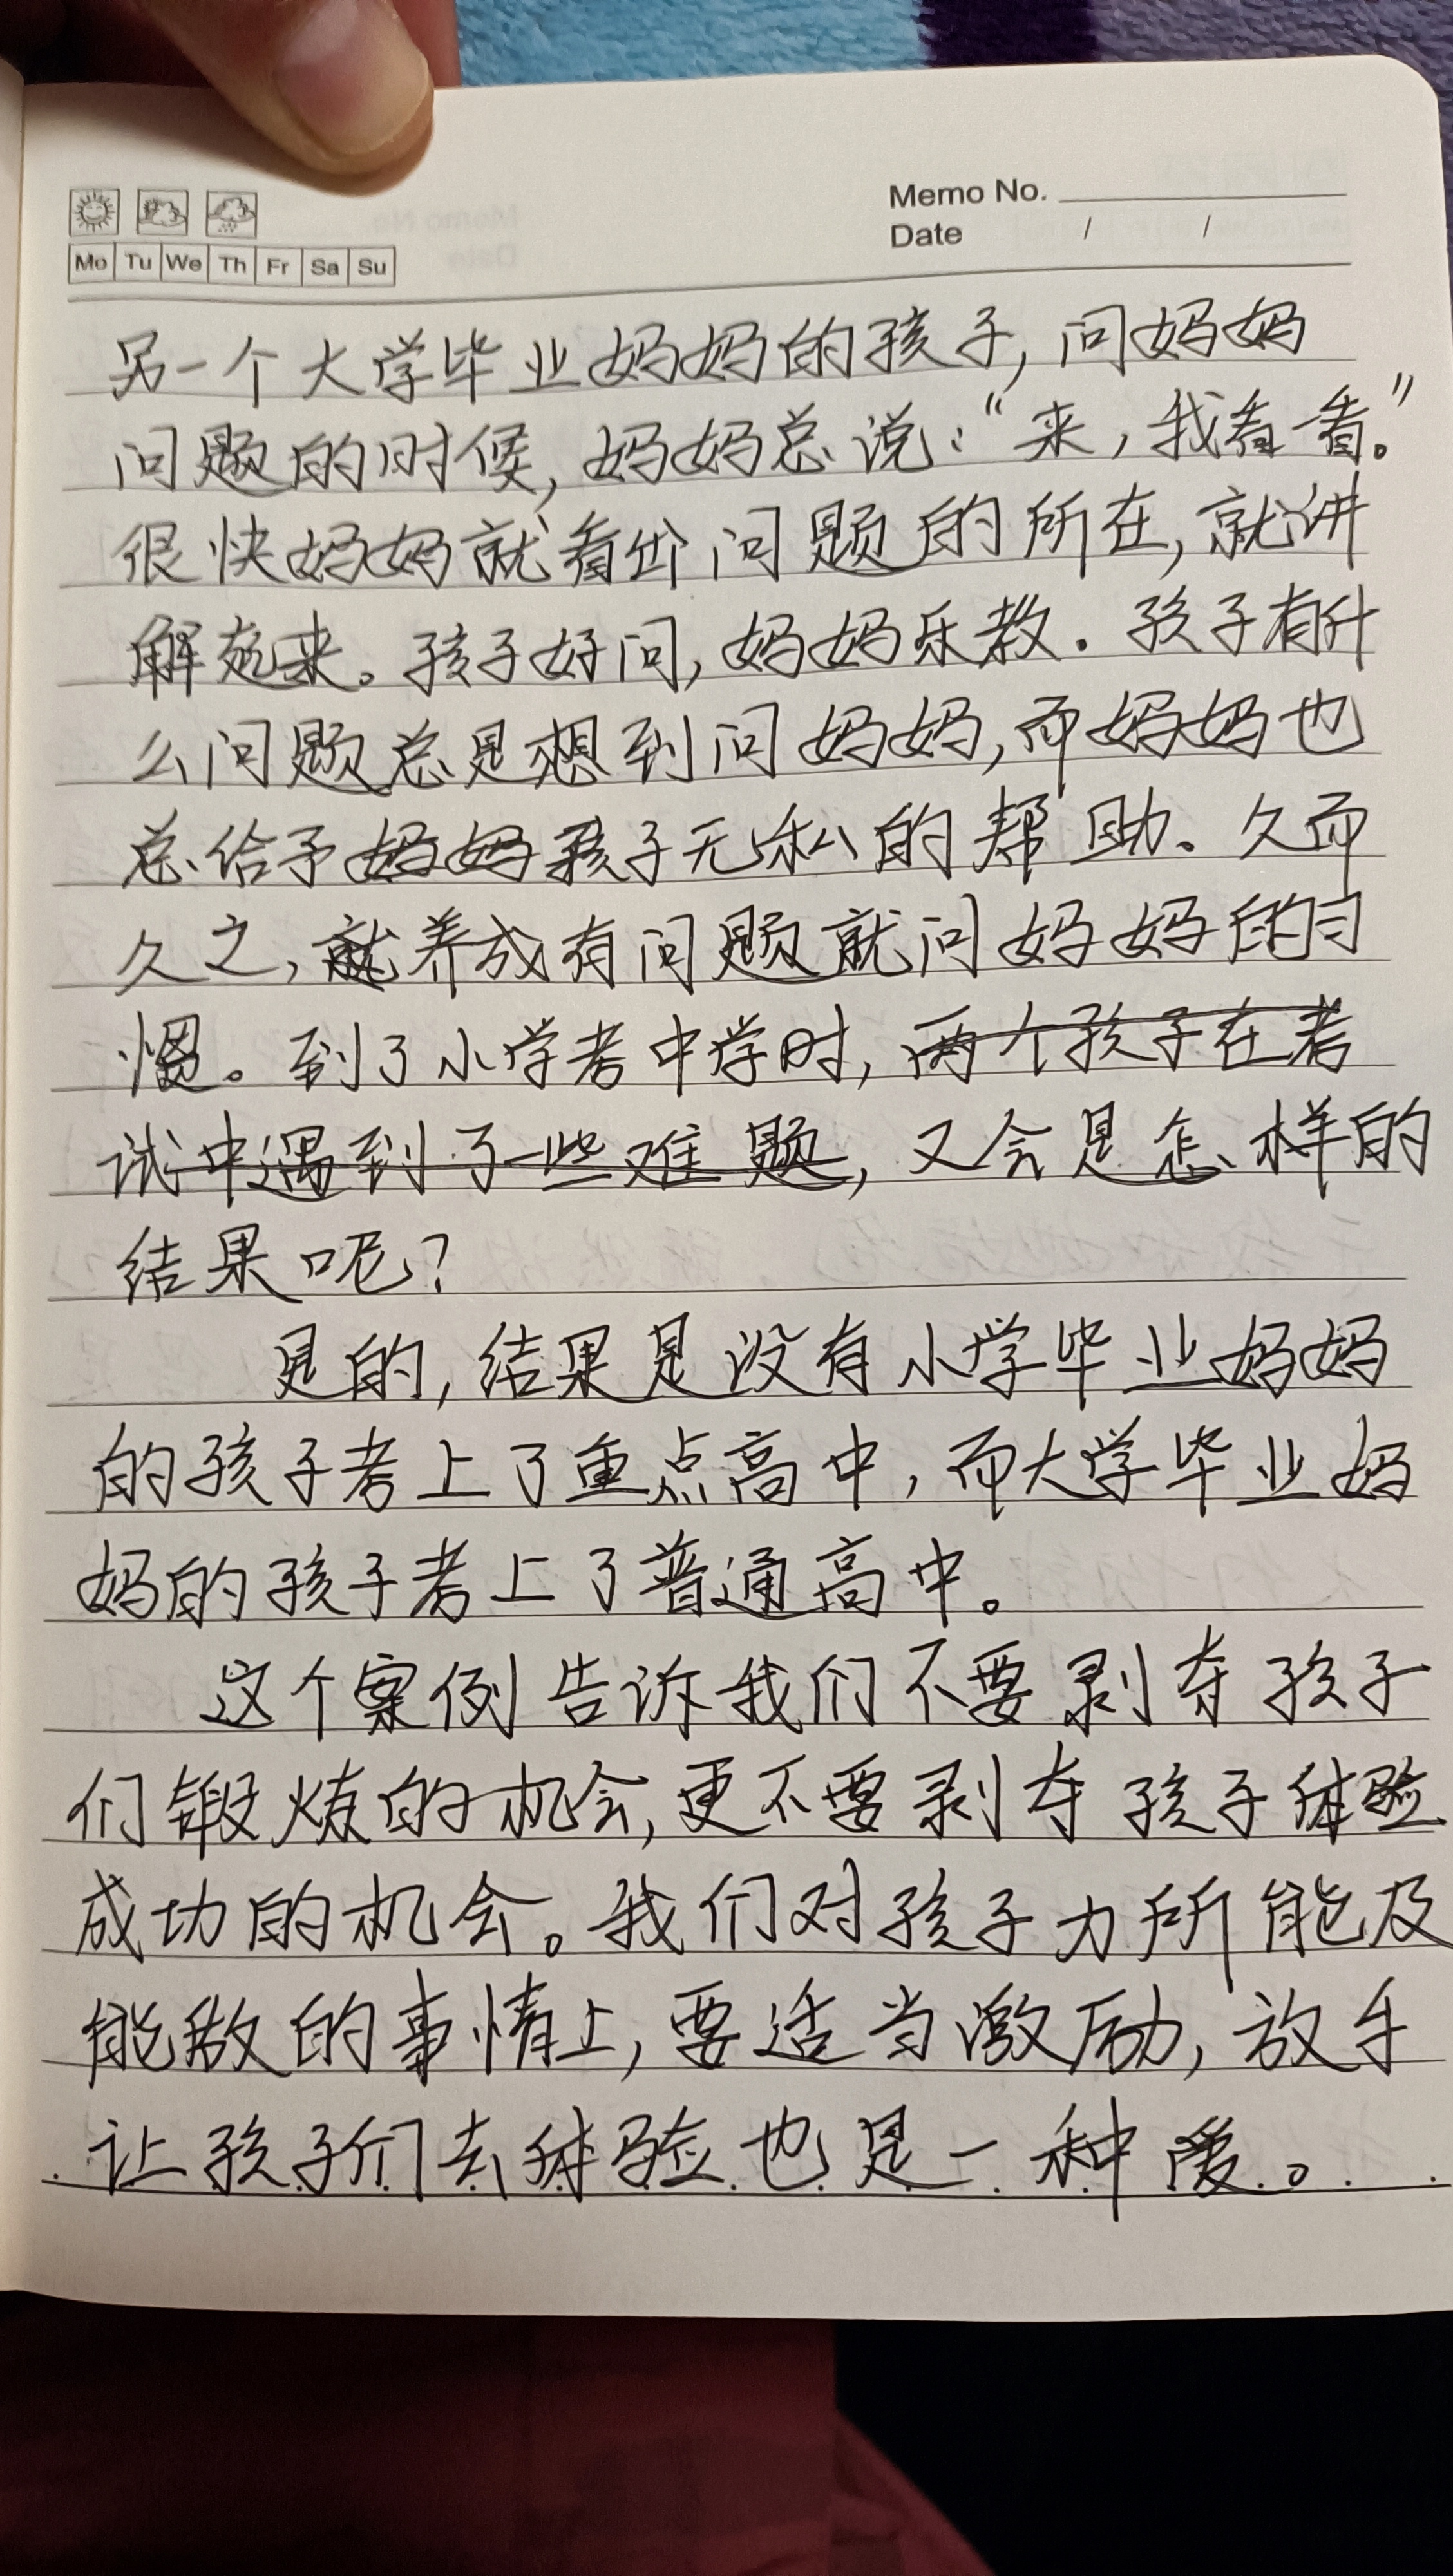 Memo No.
Date / /
Mo Tu We Th Fr Sa Su
另一个大学毕业妈妈的孩子,问妈妈
问题的时候,妈妈总说:“来,我看一看。”
很快妈妈就看出问题的所在,就讲
解起来。孩子好问,妈妈乐教.孩子有什
么问题总是想到问妈妈,而妈妈也
总给予妈妈孩子无私的帮助。久而
久之,就养成有问题就问妈妈的习
惯。到了小学考中学时,两个孩子在考
试中遇到了一些难题,又会是怎样的
结果呢?
是的,结果是没有小学毕业妈妈
的孩子考上了重点高中,而大学毕业妈
妈的孩子考上了普通高中。
这个案例告诉我们不要剥夺孩子
们锻炼的机会,更不要剥夺孩子体验
成功的机会。我们对孩子力所能及
能做的事情上,要适当激励,放手
让孩子们去体验也是一种爱。